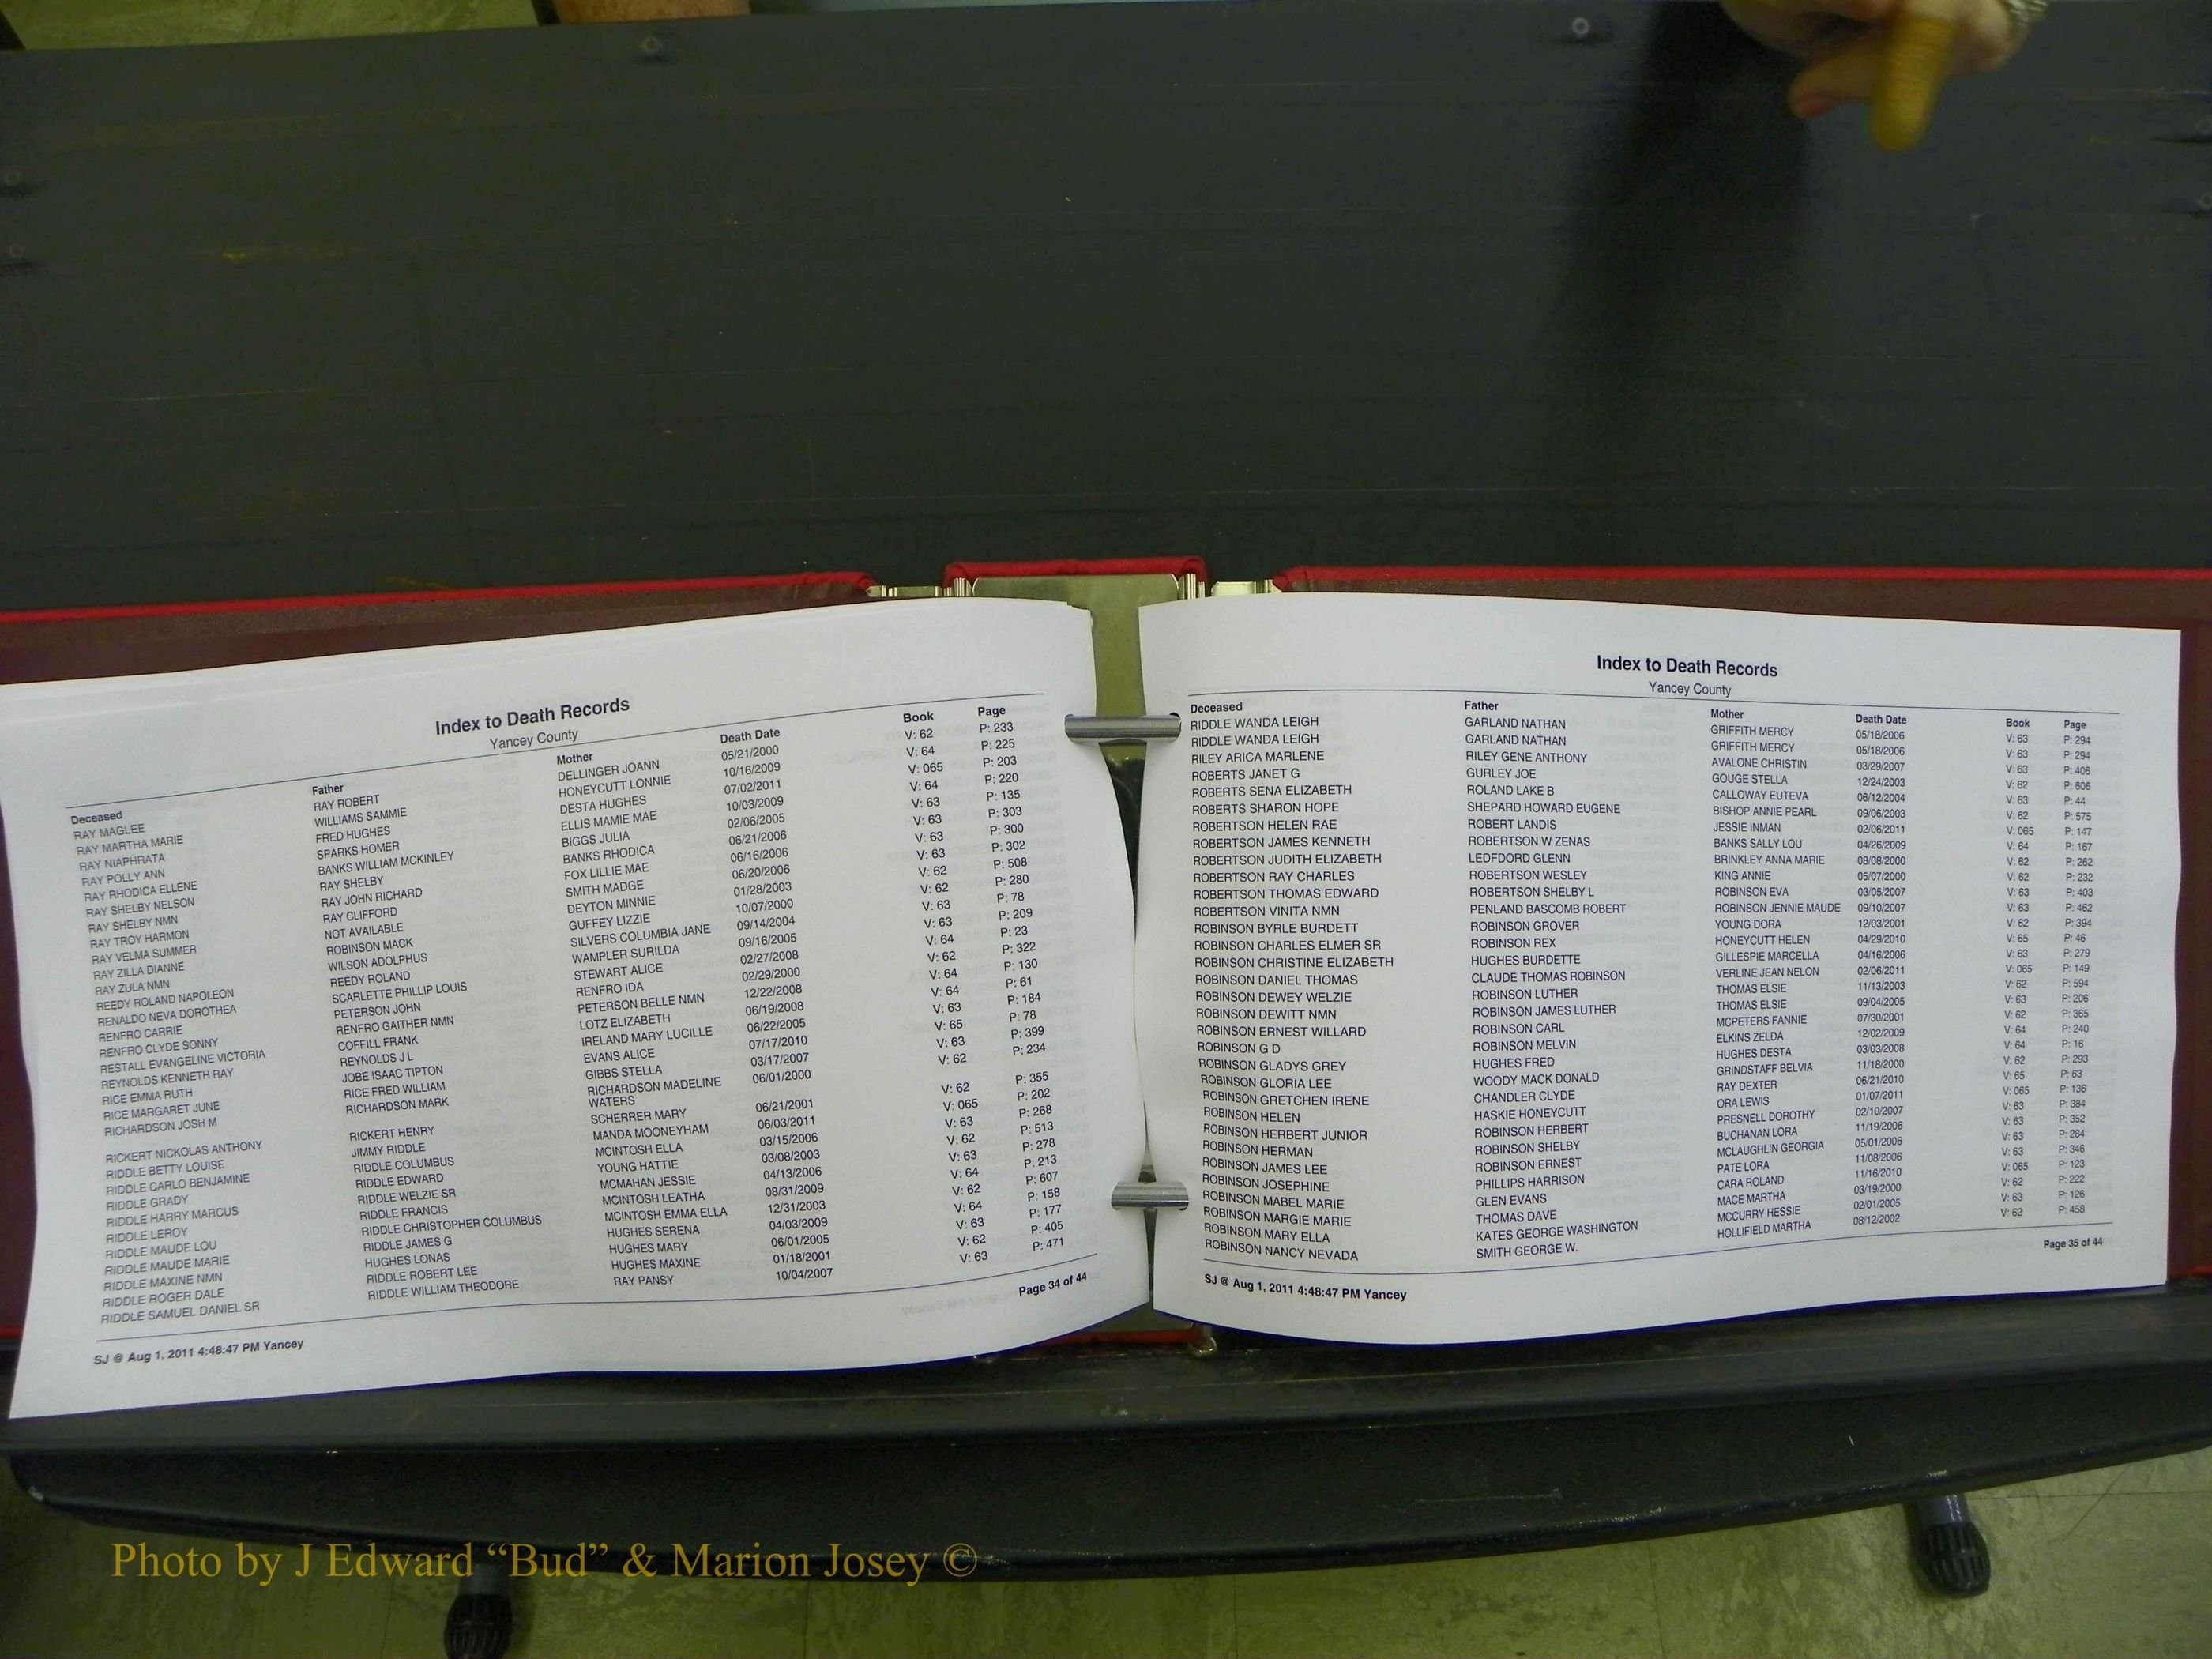 Index to Death Records
Yancey County
Deceased Father Mother Death Date Book Page
RAY MAGLEE RAY ROBERT DELLINGER JOANN 05/21/2000 V: 62 P: 233
RAY MARTHA MARIE WILLIAMS SAMMIE HONEYCUTT LONNIE 10/16/2009 V: 64 P: 225
RAY NIAPHRATA FRED HUGHES DESTA HUGHES 07/02/2011 V: 065 P: 203
RAY POLLY ANN SPARKS HOMER ELLIS MAMIE MAE 10/03/2009 V: 64 P: 220
RAY RHODICA ELLENE BANKS WILLIAM MCKINLEY BIGGS JULIA 02/06/2005 V: 63 P: 135
RAY SHELBY NELSON RAY SHELBY BANKS RHODICA 06/21/2006 V: 63 P: 303
RAY SHELBY NMN RAY JOHN RICHARD FOX LILLIE MAE 06/16/2006 V: 63 P: 300
RAY TROY HARMON RAY CLIFFORD SMITH MADGE 06/20/2006 V: 63 P: 302
RAY VELMA SUMMER NOT AVAILABLE DEYTON MINNIE 01/28/2003 V: 62 P: 508
RAY ZILLA DIANNE ROBINSON MACK GUFFEY LIZZIE 10/07/2000 V: 62 P: 280
RAY ZULA NMN WILSON ADOLPHUS SILVERS COLUMBIA JANE 09/14/2004 V: 63 P: 78
REEDY ROLAND NAPOLEON REEDY ROLAND WAMPLER SURILDA 09/16/2005 V: 63 P: 209
RENALDO NEVA DOROTHEA SCARLETTE PHILLIP LOUIS STEWART ALICE 02/27/2008 V: 64 P: 23
RENFRO CARRIE PETERSON JOHN RENFRO IDA 02/29/2000 V: 62 P: 322
RENFRO CLYDE SONNY RENFRO GAITHER NMN PETERSON BELLE NMN 12/22/2008 V: 64 P: 130
RESTALL EVANGELINE VICTORIA COFFILL FRANK LOTZ ELIZABETH 06/19/2008 V: 64 P: 61
REYNOLDS KENNETH RAY REYNOLDS J L IRELAND MARY LUCILLE 06/22/2005 V: 63 P: 184
RICE EMMA RUTH JOBE ISAAC TIPTON EVANS ALICE 07/17/2010 V: 65 P: 78
RICE MARGARET JUNE RICE FRED WILLIAM GIBBS STELLA 03/17/2007 V: 63 P: 399
RICHARDSON JOSH M RICHARDSON MARK RICHARDSON MADELINE 06/01/2000 V: 62 P: 234
WATERS
RICKERT NICKOLAS ANTHONY RICKERT HENRY SCHERRER MARY 06/21/2001 V: 62 P: 355
RIDDLE BETTY LOUISE JIMMY RIDDLE MANDA MOONEYHAM 06/03/2011 V: 065 P: 202
RIDDLE CARLO BENJAMINE RIDDLE COLUMBUS MCINTOSH ELLA 03/15/2006 V: 63 P: 268
RIDDLE GRADY RIDDLE EDWARD YOUNG HATTIE 03/08/2003 V: 62 P: 513
RIDDLE HARRY MARCUS RIDDLE WELZIE SR MCMAHAN JESSIE 04/13/2006 V: 63 P: 278
RIDDLE LEROY RIDDLE FRANCIS MCINTOSH LEATHA 08/31/2009 V: 64 P: 213
RIDDLE MAUDE LOU RIDDLE CHRISTOPHER COLUMBUS MCINTOSH EMMA ELLA 12/31/2003 V: 62 P: 607
RIDDLE MAUDE MARIE RIDDLE JAMES G HUGHES SERENA 04/03/2009 V: 64 P: 158
RIDDLE MAXINE NMN HUGHES LONAS HUGHES MARY 06/01/2005 V: 63 P: 177
RIDDLE ROGER DALE RIDDLE ROBERT LEE HUGHES MAXINE 01/18/2001 V: 62 P: 405
RIDDLE SAMUEL DANIEL SR RIDDLE WILLIAM THEODORE RAY PANSY 10/04/2007 V: 63 P: 471
Page 34 of 44
SJ @ Aug 1, 2011 4:48:47 PM Yancey
Index to Death Records
Yancey County
Deceased Father Mother Death Date Book Page
RIDDLE WANDA LEIGH GARLAND NATHAN GRIFFITH MERCY 05/18/2006 V: 63 P: 294
RIDDLE WANDA LEIGH GARLAND NATHAN GRIFFITH MERCY 05/18/2006 V: 63 P: 294
RILEY ARICA MARLENE RILEY GENE ANTHONY AVALONE CHRISTIN 03/29/2007 V: 63 P: 406
ROBERTS JANET G GURLEY JOE GOUGE STELLA 12/24/2003 V: 62 P: 606
ROBERTS SENA ELIZABETH ROLAND LAKE B CALLOWAY EUTEVA 06/12/2004 V: 63 P: 44
ROBERTS SHARON HOPE SHEPARD HOWARD EUGENE BISHOP ANNIE PEARL 09/06/2003 V: 62 P: 575
ROBERTSON HELEN RAE ROBERT LANDIS JESSIE INMAN 02/06/2011 V: 065 P: 147
ROBERTSON JAMES KENNETH ROBERTSON W ZENAS BANKS SALLY LOU 04/26/2009 V: 64 P: 167
ROBERTSON JUDITH ELIZABETH LEDFDORD GLENN BRINKLEY ANNA MARIE 08/08/2000 V: 62 P: 262
ROBERTSON RAY CHARLES ROBERTSON WESLEY KING ANNIE 05/07/2000 V: 62 P: 232
ROBERTSON THOMAS EDWARD ROBERTSON SHELBY L ROBINSON EVA 03/05/2007 V: 63 P: 403
ROBERTSON VINITA NMN PENLAND BASCOMB ROBERT ROBINSON JENNIE MAUDE 09/10/2007 V: 63 P: 462
ROBINSON BYRLE BURDETT ROBINSON GROVER YOUNG DORA 12/03/2001 V: 62 P: 394
ROBINSON CHARLES ELMER SR ROBINSON REX HONEYCUTT HELEN 04/29/2010 V: 65 P: 46
ROBINSON CHRISTINE ELIZABETH HUGHES BURDETTE GILLESPIE MARCELLA 04/16/2006 V: 63 P: 279
ROBINSON DANIEL THOMAS CLAUDE THOMAS ROBINSON VERLINE JEAN NELON 02/06/2011 V: 065 P: 149
ROBINSON DEWEY WELZIE ROBINSON LUTHER THOMAS ELSIE 11/13/2003 V: 62 P: 594
ROBINSON DEWITT NMN ROBINSON JAMES LUTHER THOMAS ELSIE 09/04/2005 V: 63 P: 206
ROBINSON ERNEST WILLARD ROBINSON CARL MCPETERS FANNIE 07/30/2001 V: 62 P: 365
ROBINSON G D ROBINSON MELVIN ELKINS ZELDA 12/02/2009 V: 64 P: 240
ROBINSON GLADYS GREY HUGHES FRED HUGHES DESTA 03/03/2008 V: 64 P: 16
ROBINSON GLORIA LEE WOODY MACK DONALD GRINDSTAFF BELVIA 11/18/2000 V: 62 P: 293
ROBINSON GRETCHEN IRENE CHANDLER CLYDE RAY DEXTER 06/21/2010 V: 65 P: 63
ROBINSON HELEN HASKIE HONEYCUTT ORA LEWIS 01/07/2011 V: 065 P: 136
ROBINSON HERBERT JUNIOR ROBINSON HERBERT PRESNELL DOROTHY 02/10/2007 V: 63 P: 384
ROBINSON HERMAN ROBINSON SHELBY BUCHANAN LORA 11/19/2006 V: 63 P: 352
ROBINSON JAMES LEE ROBINSON ERNEST MCLAUGHLIN GEORGIA 05/01/2006 V: 63 P: 284
ROBINSON JOSEPHINE PHILLIPS HARRISON PATE LORA 11/08/2006 V: 63 P: 346
ROBINSON MABEL MARIE GLEN EVANS CARA ROLAND 11/16/2010 V: 065 P: 123
ROBINSON MARGIE MARIE THOMAS DAVE MACE MARTHA 03/19/2000 V: 62 P: 222
ROBINSON MARY ELLA KATES GEORGE WASHINGTON MCCURRY HESSIE 02/01/2005 V: 63 P: 126
ROBINSON NANCY NEVADA SMITH GEORGE W. HOLLIFIELD MARTHA 08/12/2002 V: 62 P: 458
Page 35 of 44
SJ @ Aug 1, 2011 4:48:47 PM Yancey
Photo by J Edward “Bud” & Marion Josey ©